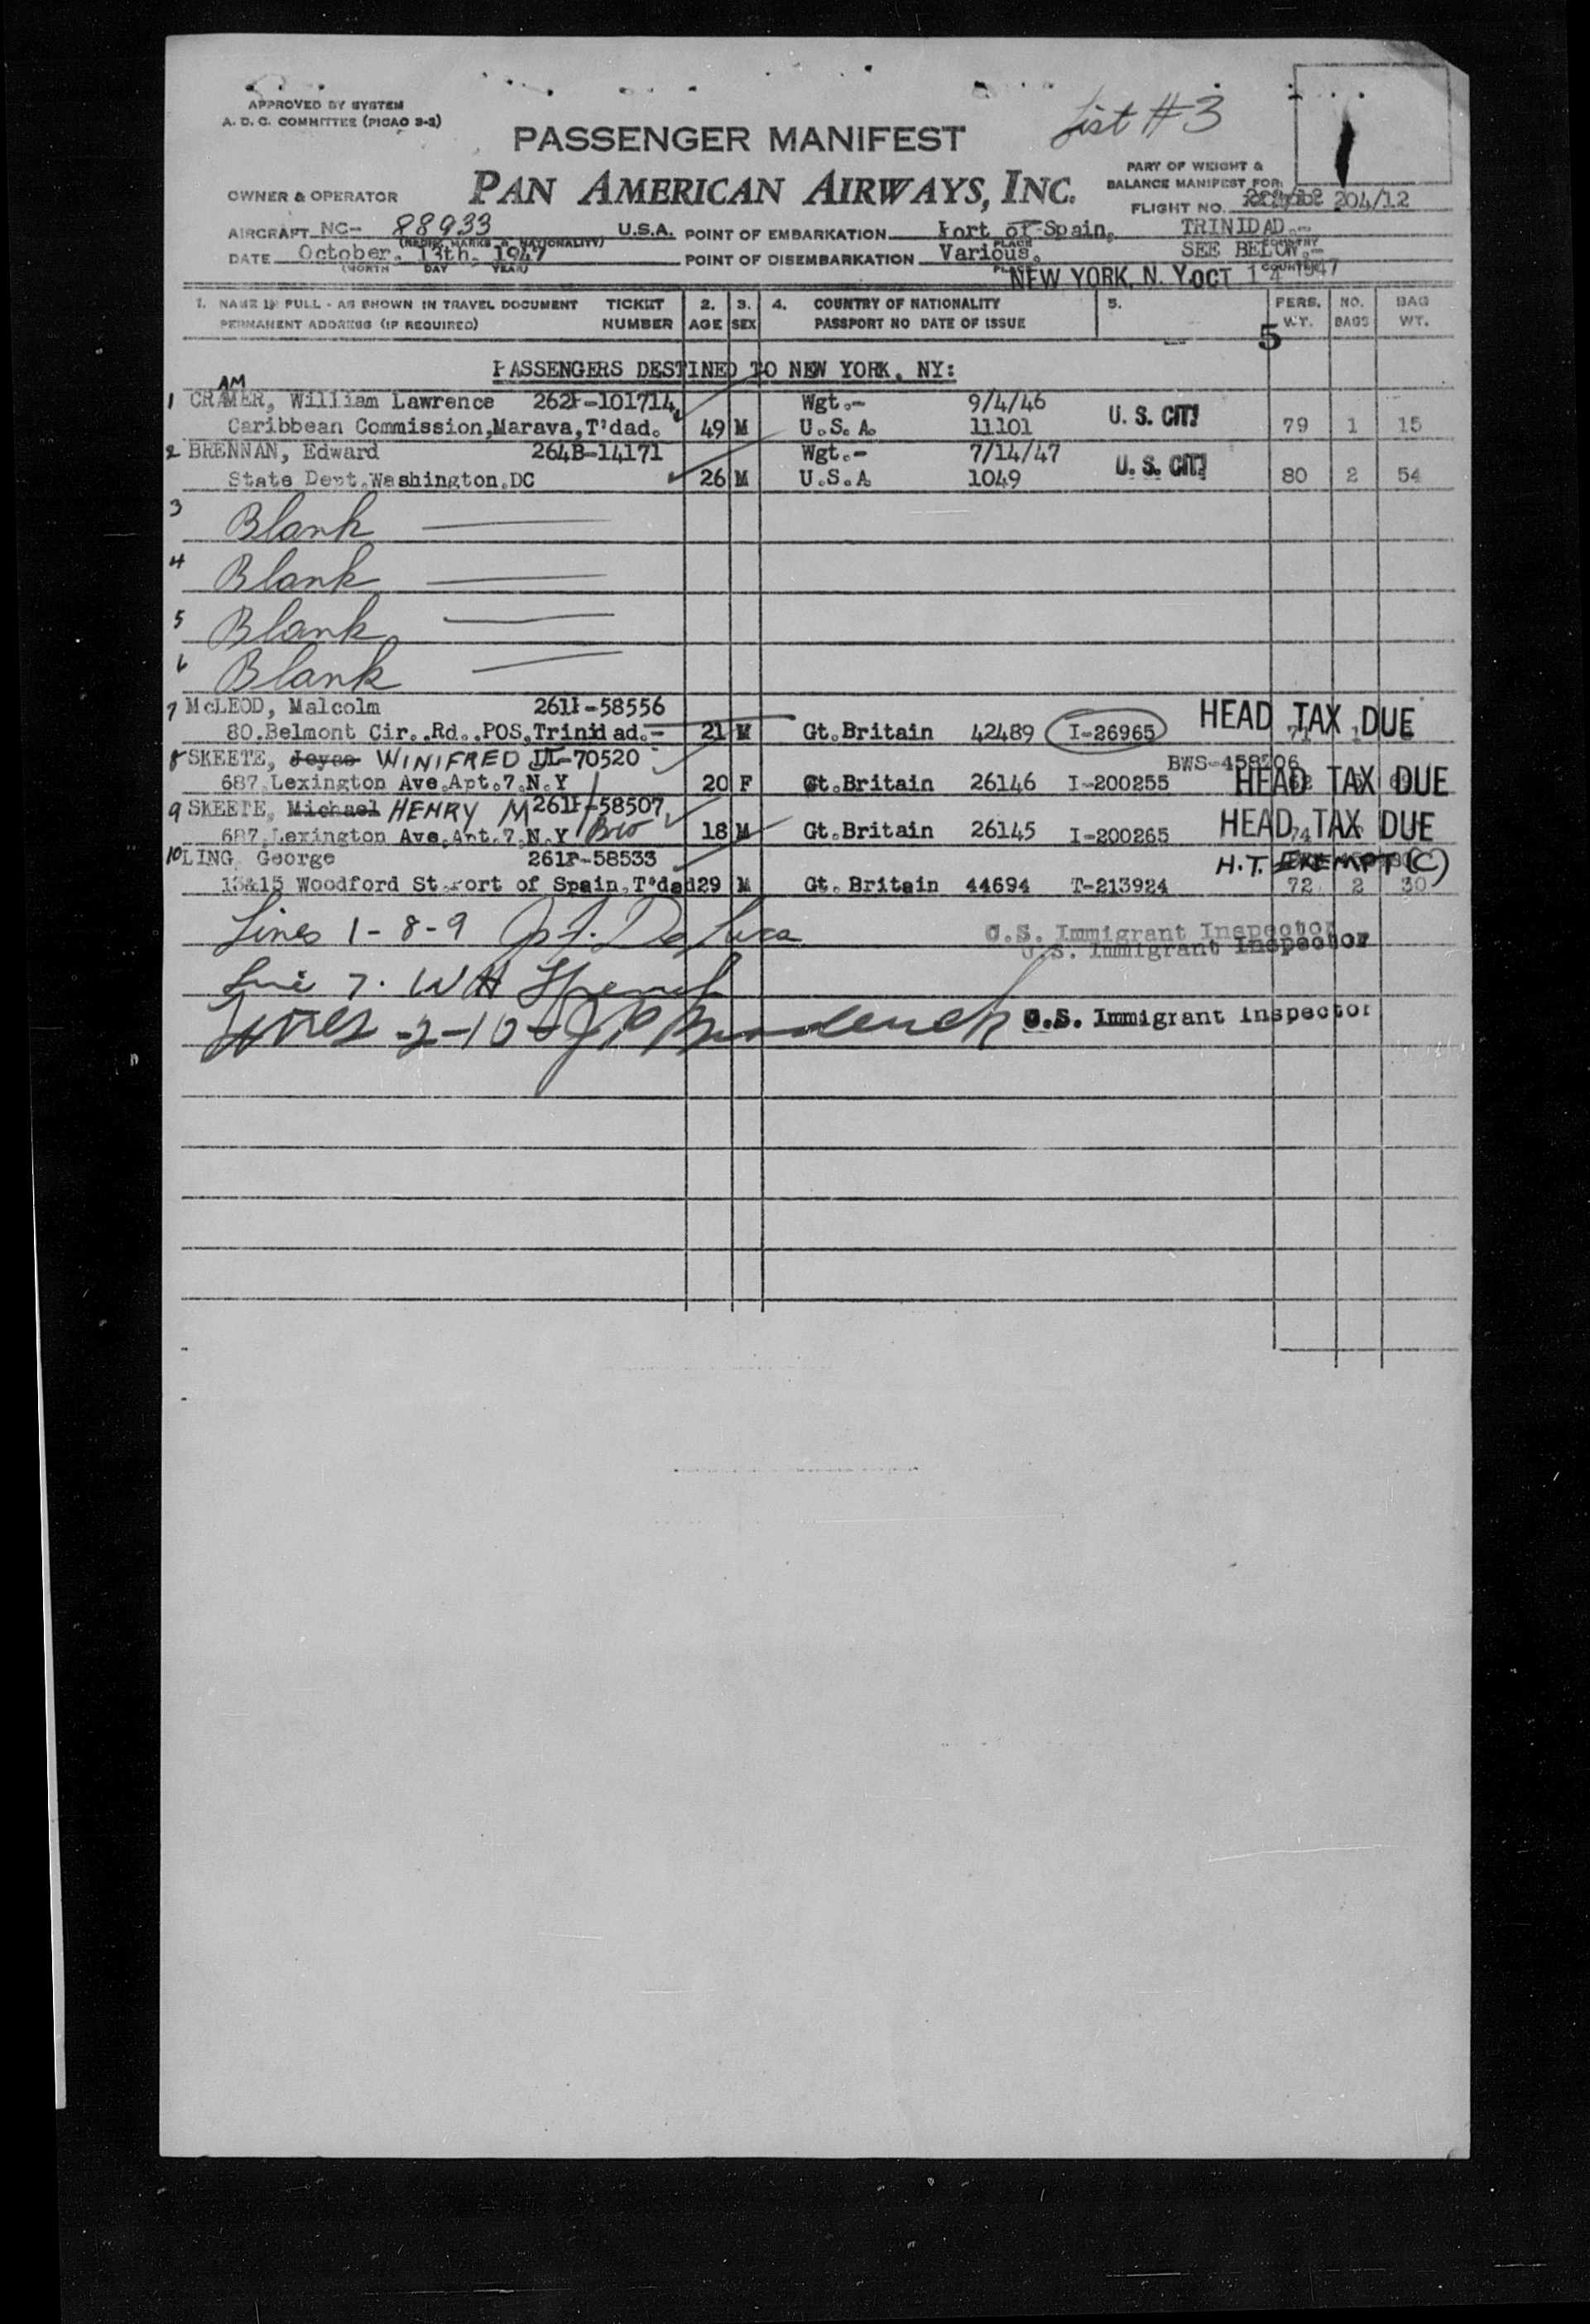 APPROVED BY SYSTEM
A. D. C. COMMITTEE (PICAO 3-3)
List #3
PASSENGER MANIFEST
PART OF WEIGHT &
BALANCE MANIFEST FOR:
OWNER & OPERATOR
PAN AMERICAN AIRWAYS, INC.
FLIGHT NO. 204/12
AIRCRAFT NC- 88933 U.S.A. POINT OF EMBARKATION Port of Spain, TRINIDAD.-
(REGIS. MARKS & NATIONALITY) PLACE COUNTRY
DATE October. 13th. 1947 POINT OF DISEMBARKATION Various. SEE BELOW.-
(MONTH DAY YEAR) COUNTRY
NEW YORK, N. Y. OCT 14 1947
1. NAME IN FULL - AS SHOWN IN TRAVEL DOCUMENT TICKET 2. 3. 4. COUNTRY OF NATIONALITY 5. PERS. NO. BAG
PERMANENT ADDRESS (IF REQUIRED) NUMBER AGE SEX PASSPORT NO DATE OF ISSUE WT. BAGS WT.
5
PASSENGERS DESTINED TO NEW YORK, NY:
AM
1 CRAMER, William Lawrence 262F-101714 Wgt.- 9/4/46
Caribbean Commission,Marava,T'dad. 49 M U.S.A. 11101 U. S. CIT. 79 1 15
2 BRENNAN, Edward 264B-14171 Wgt.- 7/14/47
State Dept.Washington.DC 26 M U.S.A 1049 U. S. CIT. 80 2 54
3 Blank
4 Blank
5 Blank
6 Blank
7 McLEOD, Malcolm 261F-58556
80.Belmont Cir..Rd..POS.Trinidad.- 21 M Gt.Britain 42489 I-26965 HEAD TAX DUE
8 SKEETE, Joyce WINIFRED -70520 BWS-458206
687.Lexington Ave.Apt.7.N.Y 20 F Gt.Britain 26146 I-200255 HEAD TAX DUE
9 SKEETE, Michael HENRY M 261F-58507
687.Lexington Ave.Apt.7.N.Y 18 M Gt.Britain 26145 I-200265 HEAD TAX DUE
10 LING George 261F-58533 H.T. EXEMPT (C)
13&15 Woodford St.Port of Spain,T'dad 29 M Gt. Britain 44694 T-213924 72 2 30
Lines 1-8-9
U.S. Immigrant Inspector
U.S. Immigrant Inspector
Line 7. W H
Lines -2-10-
U.S. Immigrant Inspector